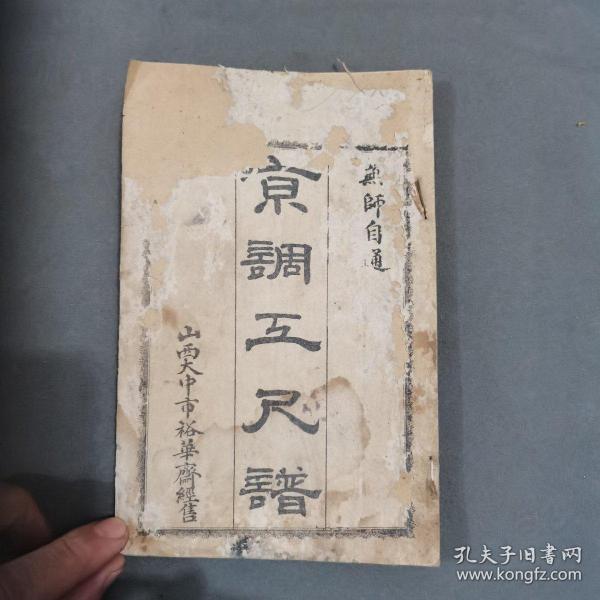 無師自通
京調工尺譜
山西大中市裕華齋經售
孔夫子旧书网
www.kongfz.com